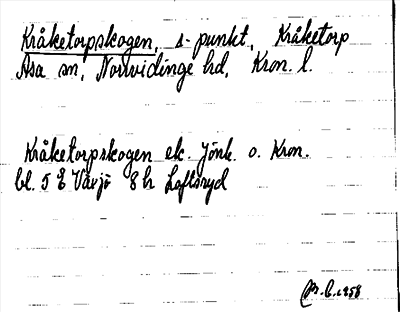 Kråketorpskogen, s-punkt, Kråketorp
Asa sn, Norrvidinge hd, Kron. l.
Kråketorpskogen ek. Jönk. o. Kron.
bl. 5 E Växjö 8 h Loftsryd
1958